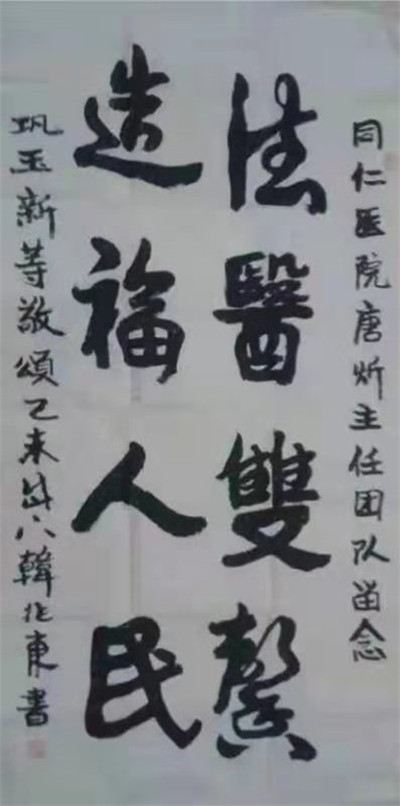 同仁医院唐炘主任团队留念
德醫雙馨
造福人民
巩玉新等敬頌乙未岁八韓作東書